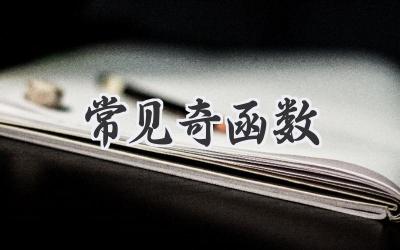 常见奇函数